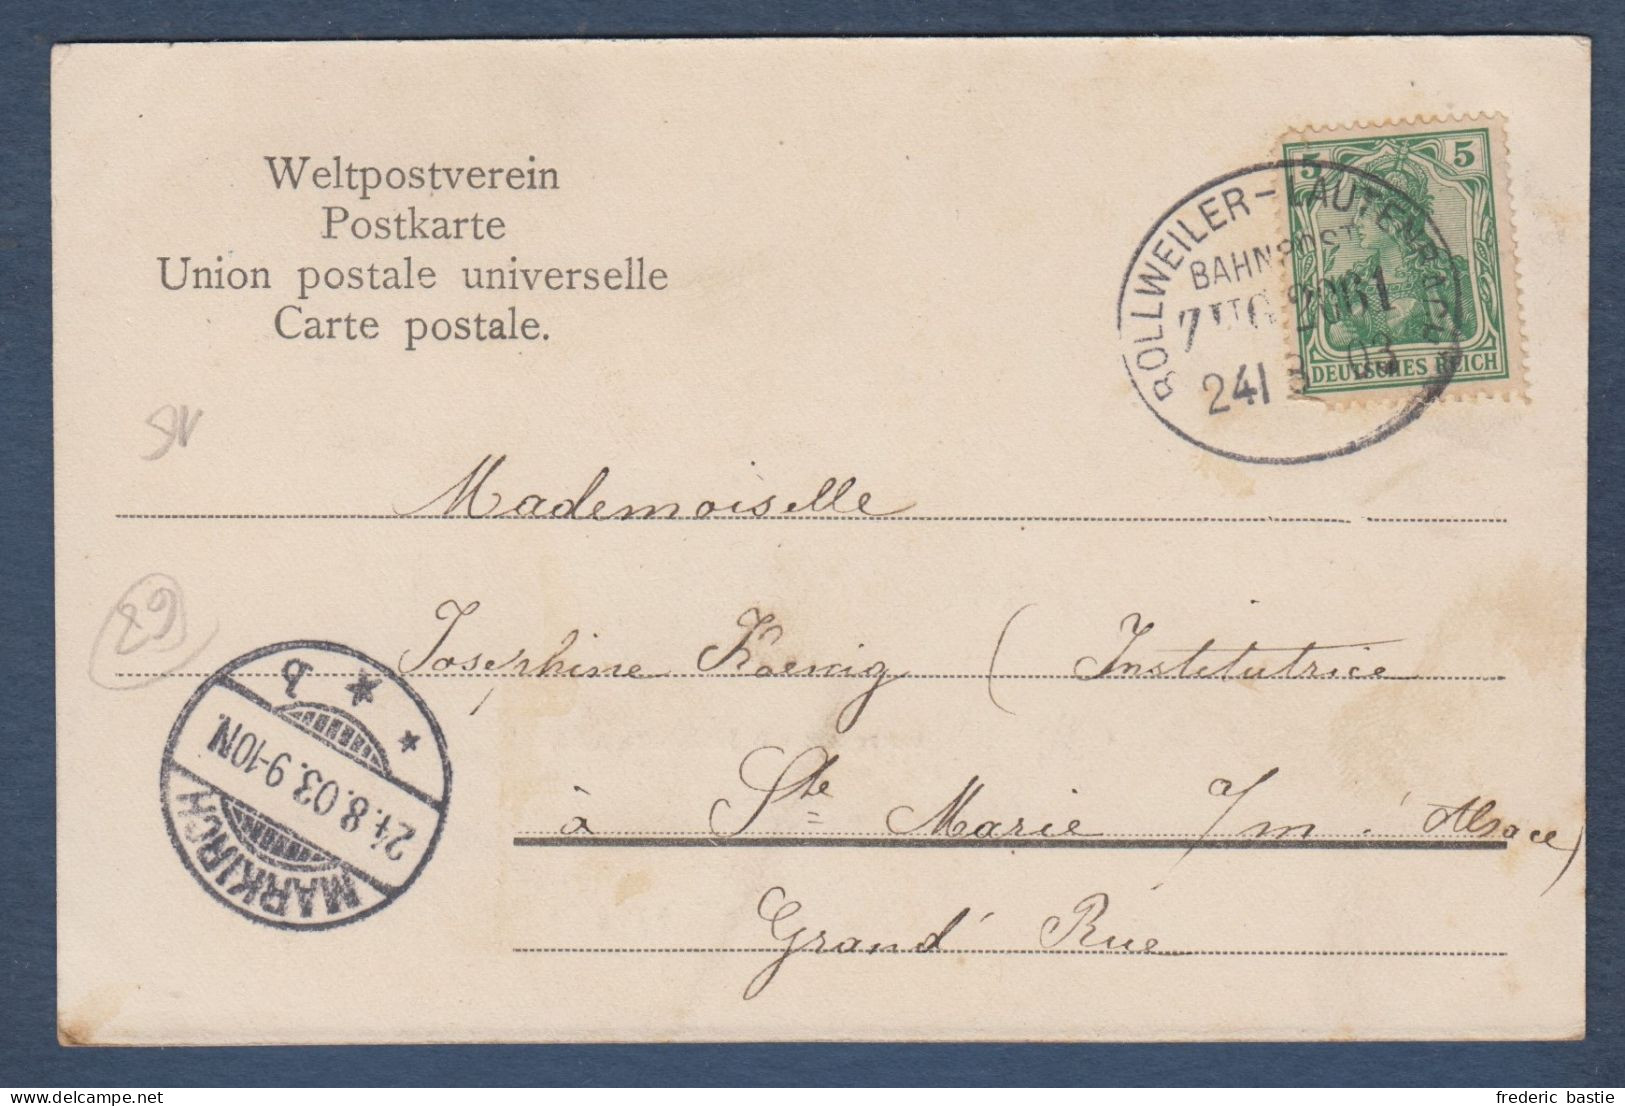 Weltpostverein
Postkarte
Union postale universelle
Carte postale.
5 5
DEUTSCHES REICH
BOLLWEILER - LAUTENBACH
BAHNPOST
ZUG 2061
24 8 03
Mademoiselle
Josephine Koenig (Institutrice
à Ste Marie /m. Alsace)
Grand' Rue
b
24.8.03.9-10N.
MARKIRCH
frederic bastie